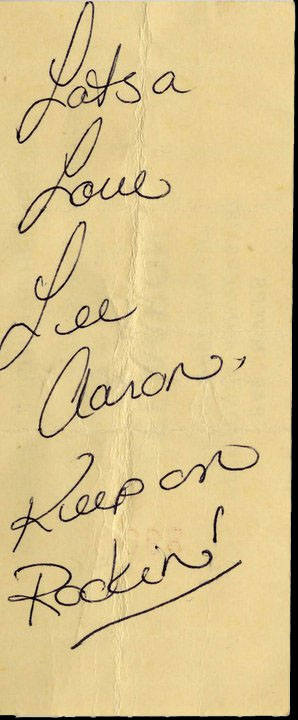 Lotsa
Love
Lee
Aaron,
Keep on
Rockin!